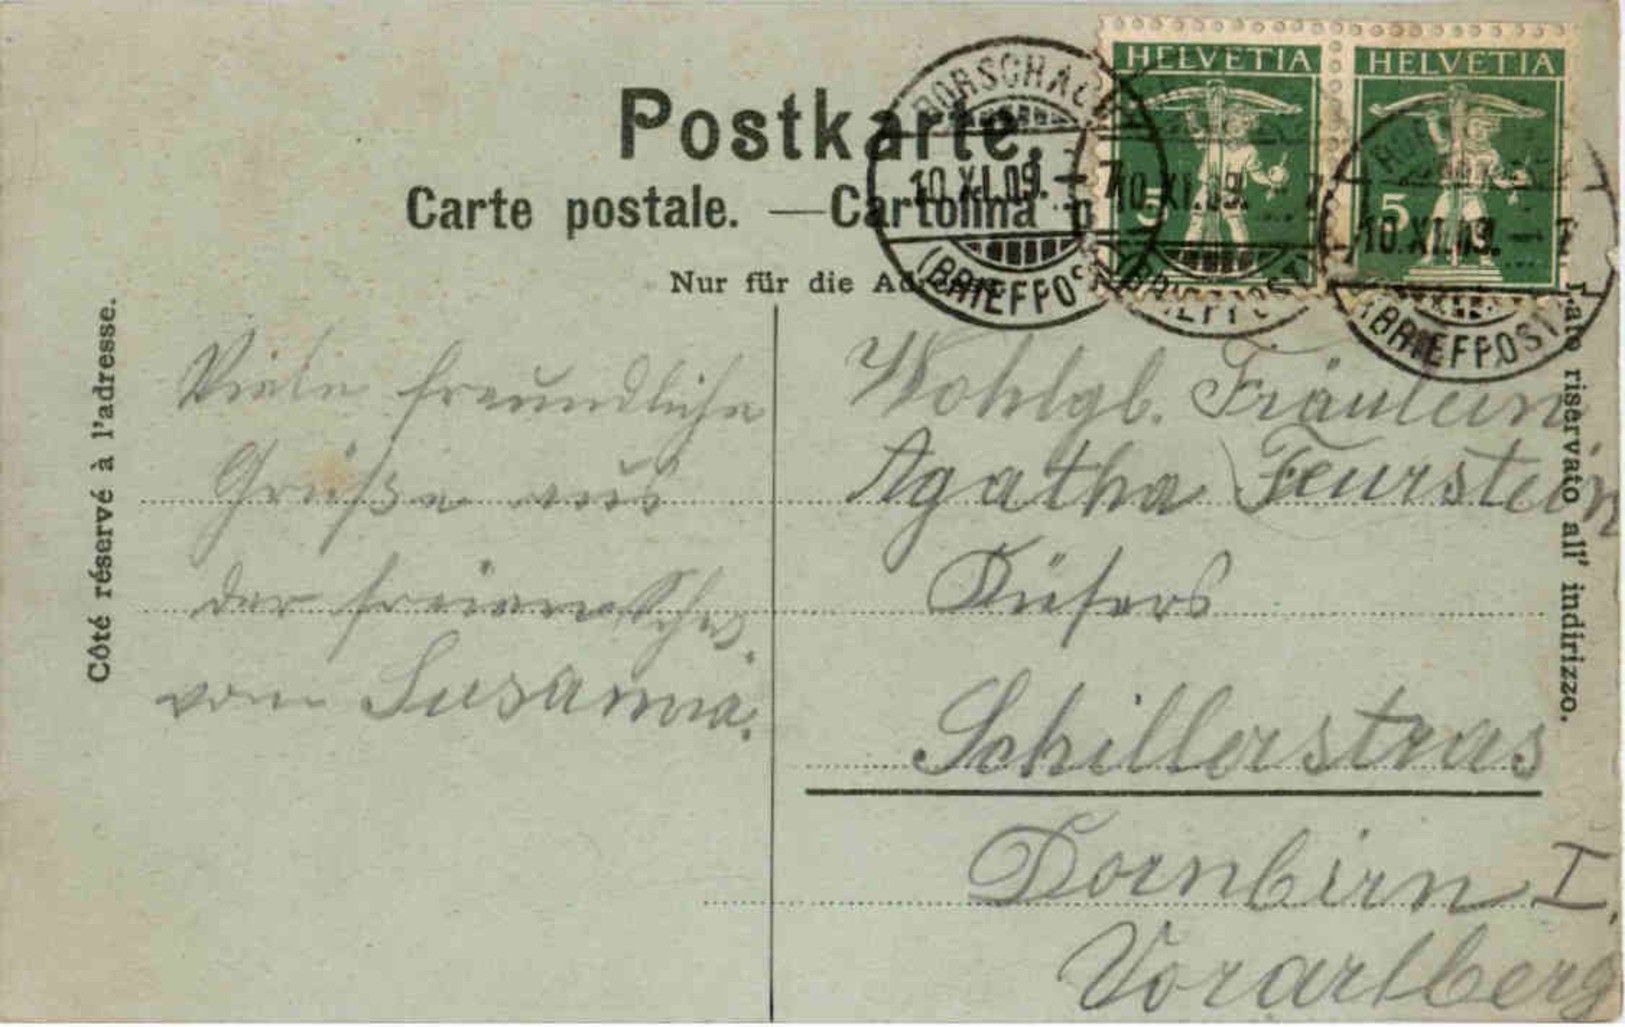 HELVETIA HELVETIA
5 5
RORSCHACH
10.XI.09. - 7
(BRIEFPOST)
10.XI.09. 7
(BRIEFPOST)
10.XI.09. - 7
(BRIEFPOST)
Postkarte.
Carte postale. — Cartolina p
Nur für die Adresse
Côté réservé à l'adresse.
Lato riservato all' indirizzo.
Viele freundliche
Grüße aus
der freien Schweiz
von Susanna.
Wohlgb. Fräulein
Agatha Feurstein
Küfers
Schillerstras
Dornbirn I.
Vorarlberg